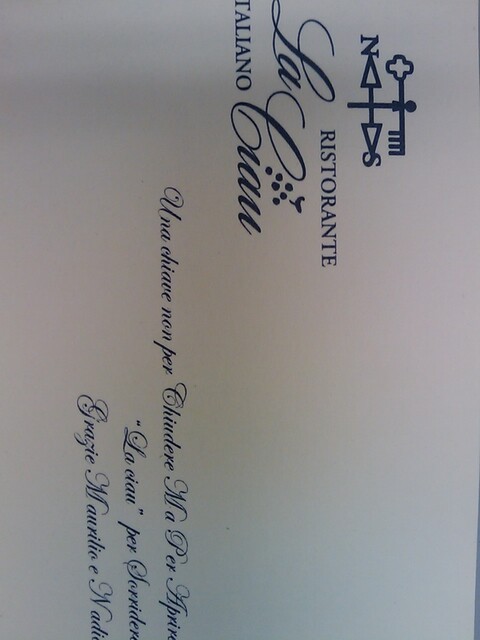 N S
RISTORANTE
La Ciau
ITALIANO
Una chiave non per Chiudere Ma Per Aprire
"La ciau" per Sorridere
Grazie Maurilio e Nadia